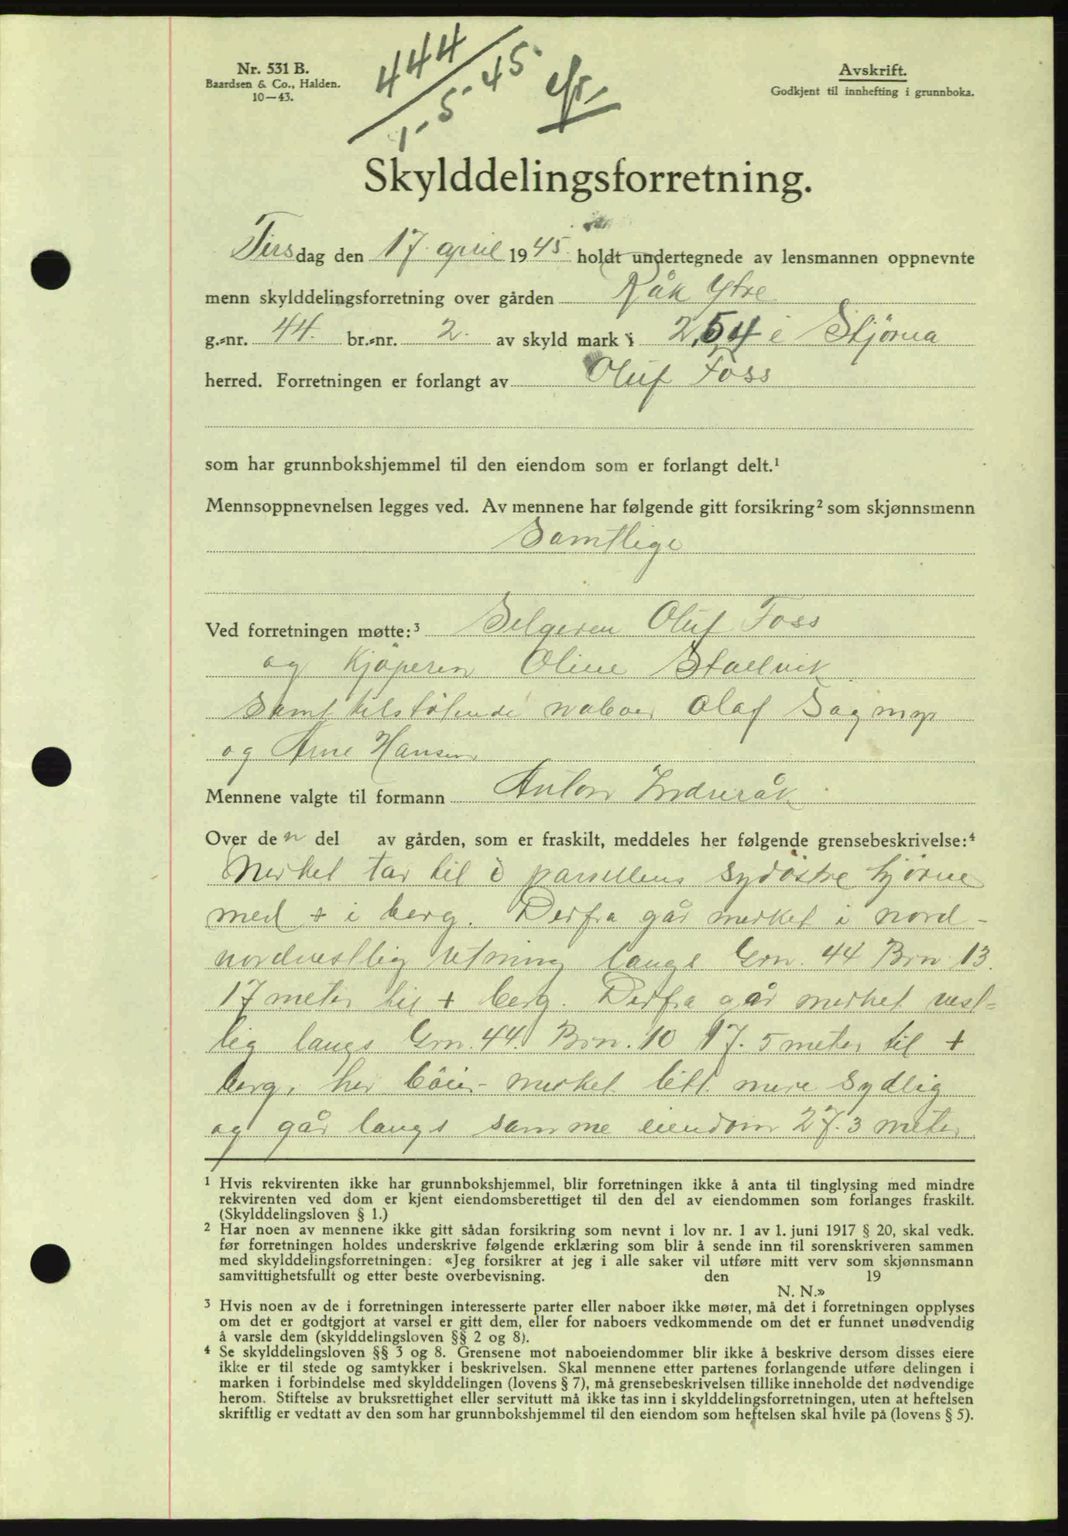 444
1-5-45
Nr. 531 B.
Baardsen & Co., Halden.
10—43.
Avskrift.
Godkjent til innhefting i grunnboka.
Skylddelingsforretning.
Tirsdag den 17. april 1945. holdt undertegnede av lensmannen oppnevnte
menn skylddelingsforretning over gården Råk Ytre
g.-nr. 44. br.-nr. 2. av skyld mark i 2,54 i Stjørna
herred. Forretningen er forlangt av Oluf Foss
som har grunnbokshjemmel til den eiendom som er forlangt delt.¹
Mennsoppnevnelsen legges ved. Av mennene har følgende gitt forsikring² som skjønnsmenn
Samtlige
Ved forretningen møtte:³ Selgeren Oluf Foss
og Kjøperen Oline Stallvik
samt tilstøtende naboer Olaf Sagmyr
og Arne Hansen
Mennene valgte til formann Anton Indreråk
Over den del av gården, som er fraskilt, meddeles her følgende grensebeskrivelse:⁴
Merket tar til i parsellens sydöstre hjørne
med + i berg. Derfra går merket i nord-
nordvestlig retning langs Grn. 44 Brn 13.
17 meter til + berg. Derfra går merket vest-
lig langs Grn. 44. Brn. 10 17.5 meter til +
berg, her böier merket litt mere sydlig
og går langs samme eiendom 27.3 meter
¹ Hvis rekvirenten ikke har grunnbokshjemmel, blir forretningen ikke å anta til tinglysing med mindre
rekvirenten ved dom er kjent eiendomsberettiget til den del av eiendommen som forlanges fraskilt.
(Skylddelingsloven § 1.)
² Har noen av mennene ikke gitt sådan forsikring som nevnt i lov nr. 1 av 1. juni 1917 § 20, skal vedk.
før forretningen holdes underskrive følgende erklæring som blir å sende inn til sorenskriveren sammen
med skylddelingsforretningen: «Jeg forsikrer at jeg i alle saker vil utføre mitt verv som skjønnsmann
samvittighetsfullt og etter beste overbevisning. den 19
N. N.»
³ Hvis noen av de i forretningen interesserte parter eller naboer ikke møter, må det i forretningen opplyses
om det er godtgjort at varsel er gitt dem, eller for naboers vedkommende om det er funnet unødvendig
å varsle dem (skylddelingsloven §§ 2 og 8).
⁴ Se skylddelingsloven §§ 3 og 8. Grensene mot naboeiendommer blir ikke å beskrive dersom disses eiere
ikke er til stede og samtykker i beskrivelsen. Skal mennene etter partenes forlangende utføre delingen i
marken i forbindelse med skylddelingen (lovens § 7), må grensebeskrivelsen tillike inneholde det nødvendige
herom. Stiftelse av bruksrettighet eller servitutt må ikke tas inn i skylddelingsforretningen, uten at heftelsen
skriftlig er vedtatt av den som har grunnbokshjemmel til den eiendom som heftelsen skal hvile på (lovens § 5).